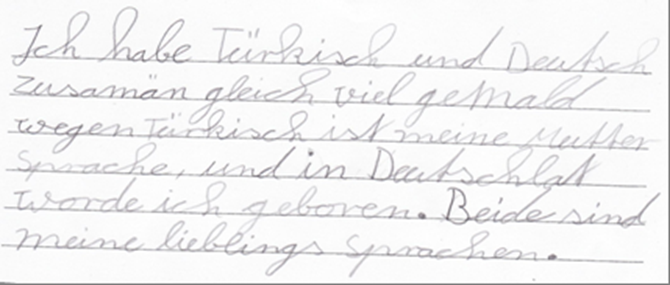 Ich habe Türkisch und Deutsch
zusamän gleich viel gemald
wegen Türkisch ist meine Mutter
sprache, und in Deutschlat
worde ich geboren. Beide sind
meine lieblings sprachen.